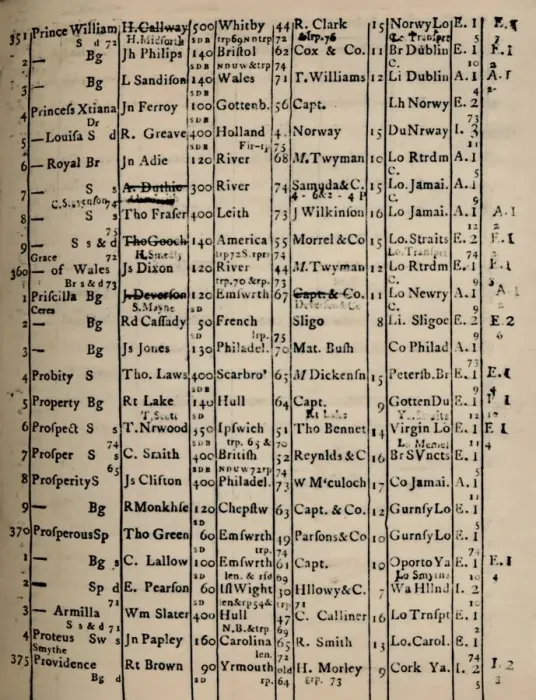 351 Prince William H. Callway 500 Whitby 44 R. Clark 15 Norwy Lo E. 1 E. 1
S d 72 H. Midforth SDB trp 69 Nntrp &trp. 76 Lo Transprt 5
2 — Bg Jh Philips 140 Bristol 62 Cox & Co. 11 Br Dublin E. 1 E. 1
SDB NDUW&trp C. 10
3 — Bg L Sandison 140 Wales 71 T. Williams 12 Li Dublin A. 1 A. 1
SDB 4
4 Princess Xtiana Jn Ferroy 100 Gottenb. 56 Capt. Lh Norwy E. 2
Dr SDB 73
5 — Louisa S d R. Greave 400 Holland 4 Norway 15 Du Nrway I. 3
SDB 75 5
6 — Royal Br Jn Adie 120 River 68 M. Twyman 10 Lo Rtrdm A. 1
C. 5
7 — S s A. Duthie 300 River 74 Samuda & C. 15 Lo. Jamai. A. 1
C. 9
8 — S s Tho Fraser 400 Leith 73 J Wilkinson 16 Lo Jamai. A. 1 A. 1
75 12
9 — S s & d Tho Gooch 140 America 55 Morrel & Co 15 Lo. Straits E. 2 E. 1
Grace 72 H. Smealy trp 72 S. rprs 74 Lo. Transprt 74
360 — of Wales Js Dixon 120 River 44 M. Twyman 12 Lo Rtrdm E. 1 E. 1
Br s & d 73 trp. 70 & trp. 73 C. 9
1 Priscilla Bg J. Deverson 120 Emswrth 67 Capt. & Co. 11 Lo Newry A. 1 A 1
Ceres S. Mayne C. 9
2 — Bg Rd Cassady 50 French Sligo 8 Li. Sligoe E. 2 E 2
trp. 75 5
3 — Bg Js Jones 130 Philadel. 70 Mat. Bush Co Philad A. 1
73
4 Probity S Tho. Laws 400 Scarbro' 65 M Dickensn 15 Petersb. Br E. 1 E. 1
SDB 9
5 Property Bg Rt Lake 140 Hull 64 Capt. 9 Gotten Du E. 1
T. Scott Rt Lake 12
6 Prospect S s T. Nrwood 350 Ipswich 51 Tho Bennet 14 Virgin Lo E. 1 E 1
74 SDB trp. 65 & 70 11 4
7 Prosper S s C. Snaith 400 British 52 Reynlds & C 16 Br SVncts E. 1
65 SDB NDUW 72 rp 74 5
8 Prosperity S Js Clifton 400 Philadel. 73 W M'culoch 17 Co Jamai. A. 1
11
9 — Bg R Monkhse 120 Chepstw 63 Capt. & Co. 12 Gurnsy Lo E. 1
SD 5
370 Prosperous Sp Tho Green 60 Emswrth 49 Parsons & Co 10 Gurnsy Lo E. 1
SD trp. 74 74
1 — Bg s C. Lallow 100 Emswrth 61 Capt. 10 Oporto Ya E. 1 E. 1
SD len. & rsd 69 Lo Smyrna 10 4
2 — Sp d E. Pearson 60 Isl Wight 30 Hllowy & C. 7 Wa Hllnd I. 2
71 len & rp 54 & trp 71 4
3 — Armilla Wm Slater 400 Hull 47 C. Calliner 16 Lo Trnspt E. 1
S s & d 71 N.B. & trp 69 5
4 Proteus Sw s Jn Papley 160 Carolina 65 R. Smith 13 Lo. Carol. E. 1
Smythe len. 72 74
375 Providence Rt Brown 90 Yrmouth old H. Morley 9 Cork Ya. I. 2 I. 2
Bg d SD rp. 64 trp. 73 5 3